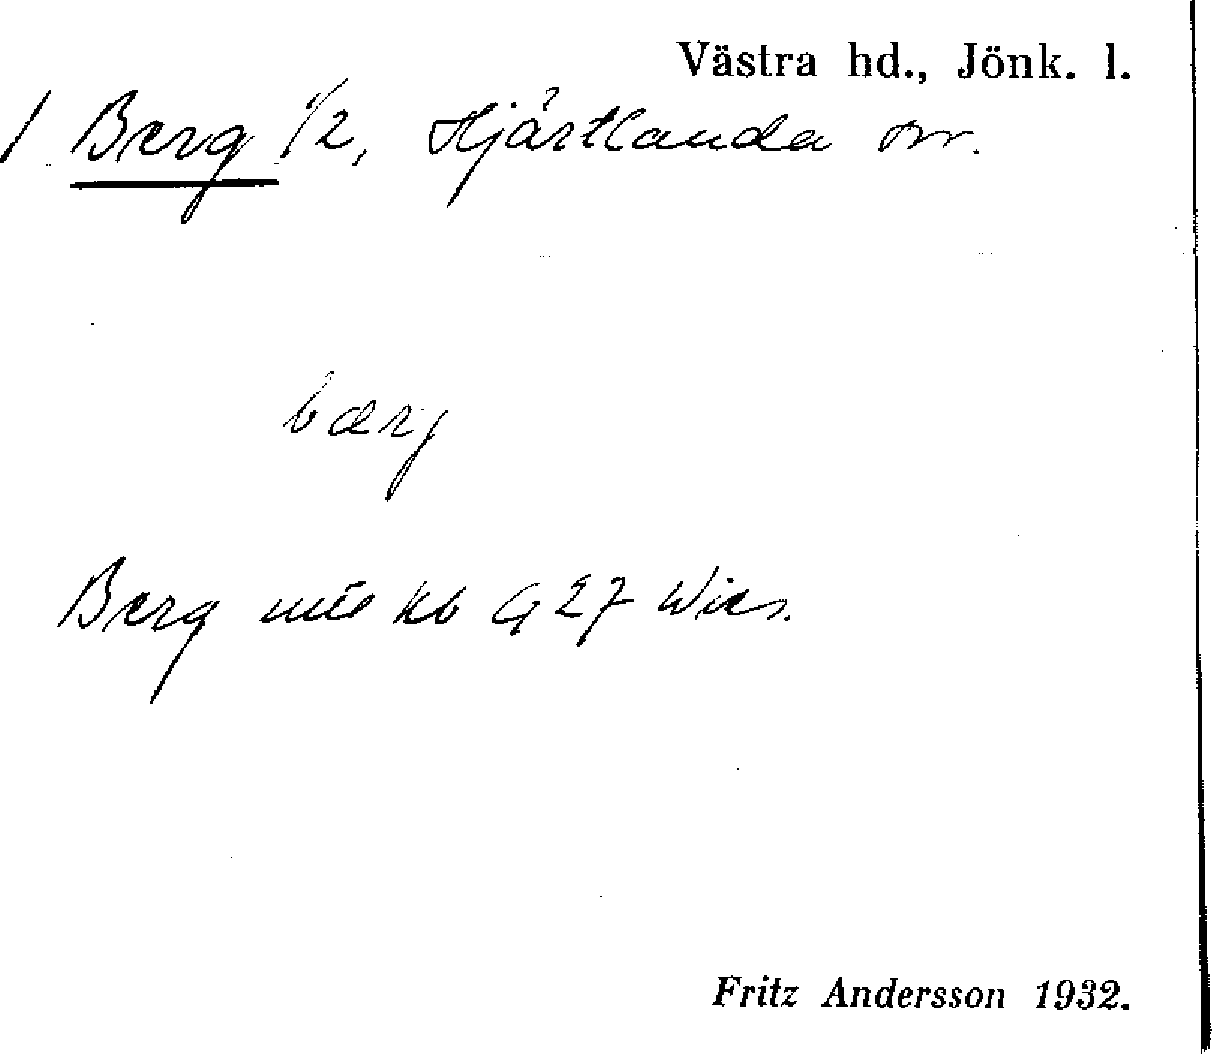 Västra hd., Jönk. l.
1 Berg 1/2, Hjärtlanda sn.
bærj
Berg
Fritz Andersson 1932.